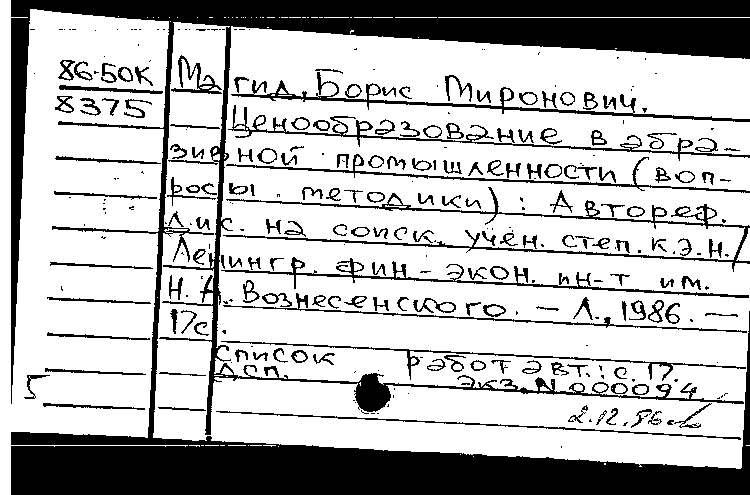 86-50К Магид, Борис Миронович.
8375 Ценообразование в абра-
зивной промышленности (воп-
росы методики) : Автореф.
дис. на соиск. учен. степ. к.э.н. /
Ленингр. фин-экон. ин-т им.
Н.А. Вознесенского. — Л., 1986. —
17с.
Список работ авт.: с. 17.
ДСП. экз. N 000094
5
2.12.86